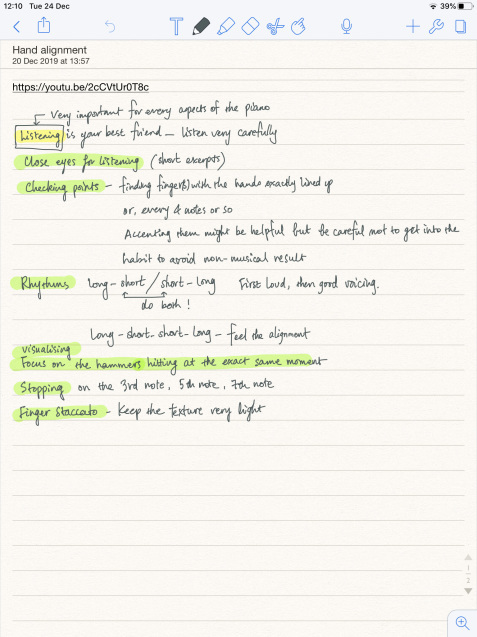 12:10 Tue 24 Dec
39%
Hand alignment
20 Dec 2019 at 13:57
https://youtu.be/2cCVtUr0T8c
Very important for every aspects of the piano
Listening is your best friend – listen very carefully
Close eyes for listening (short excerpts)
Checking points – finding finger(s) with the hands exactly lined up
or, every 4 notes or so
Accenting them might be helpful but be careful not to get into the
habit to avoid non-musical result
Rhythms long-short / short-long First loud, then good voicing.
do both!
Long-short-short-long – feel the alignment
visualising
Focus on the hammers hitting at the exact same moment
Stopping on the 3rd note, 5th note, 7th note
Finger Staccato – Keep the texture very light
1
2